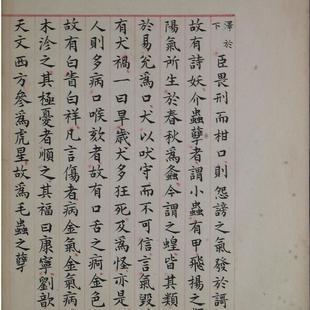 澤於
下
臣畏刑而柑口則怨謗之氣發於謌
故有詩妖介蟲孽者謂小蟲有甲飛揚之
陽氣所生於春秋爲螽今謂之蝗皆其類
於易兌爲口犬以吠守而不可信言氣毀
有犬禍一曰旱歲犬多狂死及爲怪亦是
人則多病口喉欬者故有口舌之痾金色
故有白眚白祥凡言傷者病金氣金氣病
木沴之其極憂者順之其福曰康寧劉歆
天文西方參爲虎星故爲毛蟲之孽